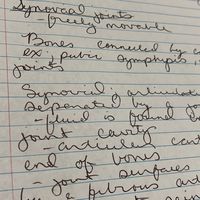 Synovial joints
- freely movable
Bones connected by
ex: pubic symphysis,
joints
Synovial, articulat
separated by a jo
- fluid is found
joint cavity
- articular cart
end of bones
- joint surfaces
a fibrous art